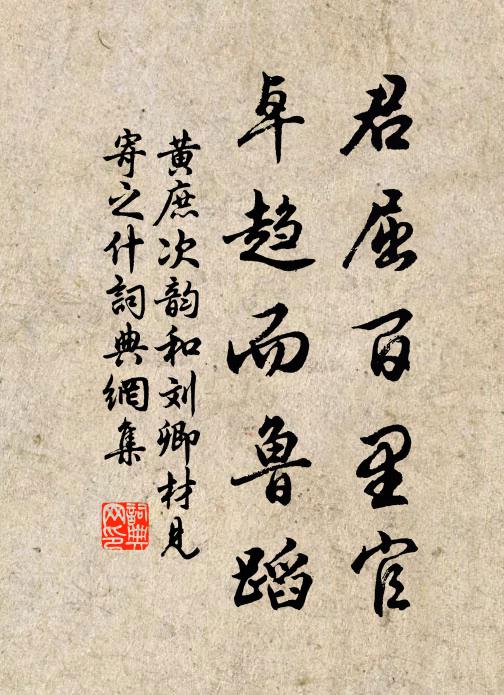 君屈百里官
卓趋而鲁蹈
黄庶次韵和刘卿材见
寄之什詞典網集
詞典
网印